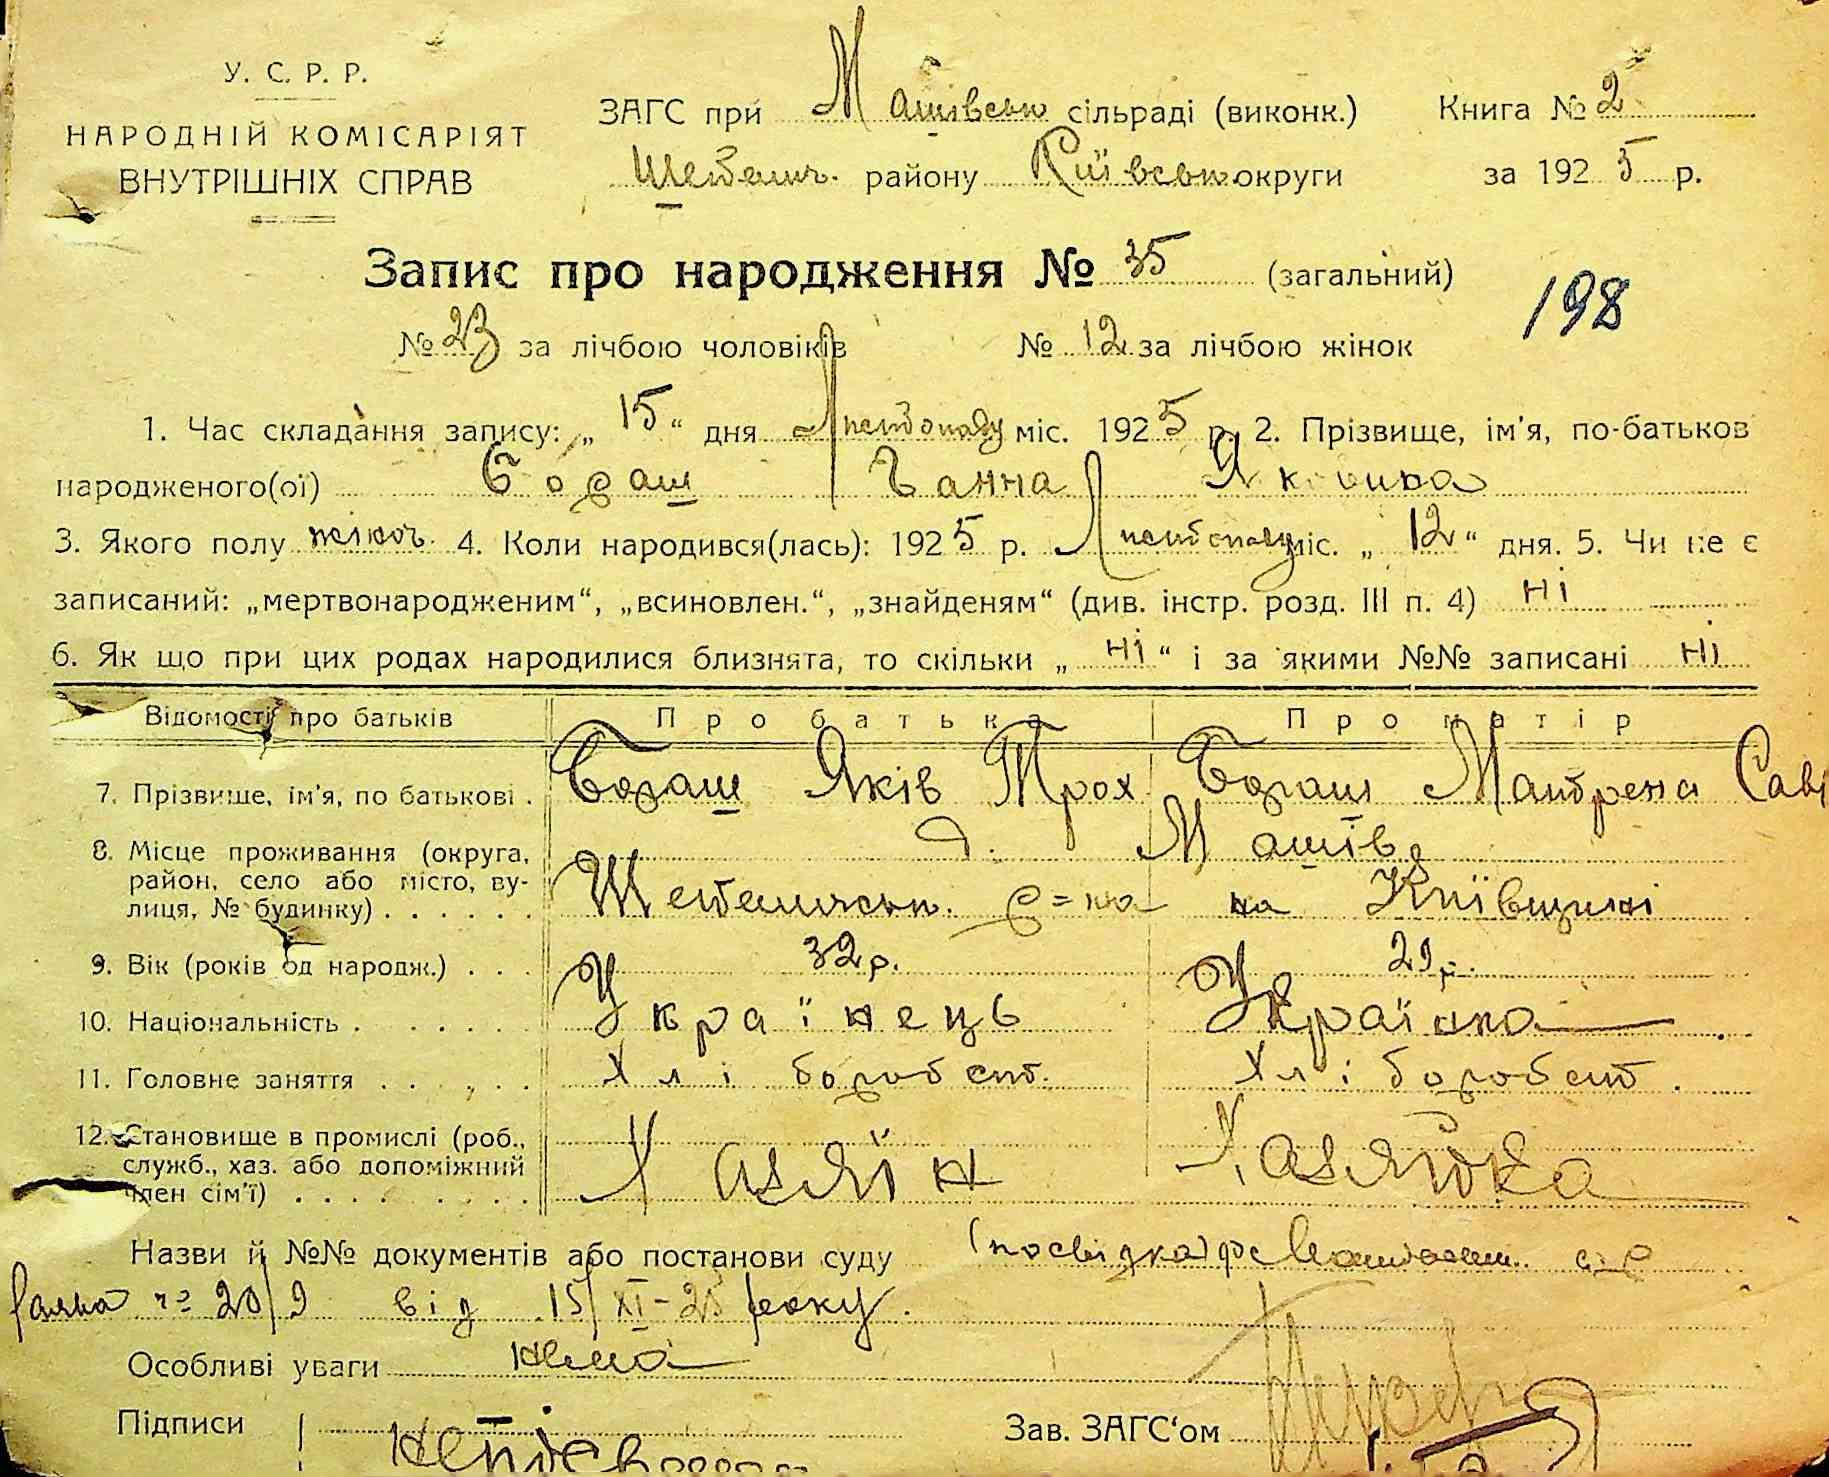 У. С. Р. Р.
НАРОДНІЙ КОМІСАРІЯТ
ВНУТРІШНІХ СПРАВ
ЗАГС при Машівськ сільраді (виконк.) Книга № 2
району Київськ. округи за 1925 р.
Запис про народження № 35 (загальний)
198
№ 23 за лічбою чоловіків № 12 за лічбою жінок
1. Час складання запису: „15“ дня Листопаду міс. 1925 р. 2. Прізвище, ім'я, по-батьков
народженого(ої) Бораш Ганна Яковина
3. Якого полу жіноч. 4. Коли народився(лась): 1925 р. Листопаду міс. „12“ дня. 5. Чи не є
записаний: „мертвонародженим“, „всиновлен.“, „знайденям“ (див. інстр. розд. III п. 4) ні
6. Як що при цих родах народилися близнята, то скільки „ні“ і за якими №№ записані ні
Відомості про батьків Про батька Про матір
7. Прізвище, ім'я, по батькові. Бораш Яків Трох Бораш Мотрена Саві
8. Місце проживання (округа, район, село або місто, вулиця, № будинку) . . . . . . Машів
р=на на Київщині
9. Вік (років од народж.) . . . 32 р. 29 р.
10. Національність . . . . . . Українець Українка
11. Головне заняття . . . . . Хлібороб Хлібороб
12. Становище в промислі (роб., служб., хаз. або допоміжний член сім'ї) . . . . . . . . Хазяїн Хазяйка
Назви й №№ документів або постанови суду (посвідка)
№ 20/9 від 15/XI-25 року.
Особливі уваги нема
Підписи Зав. ЗАГС'ом